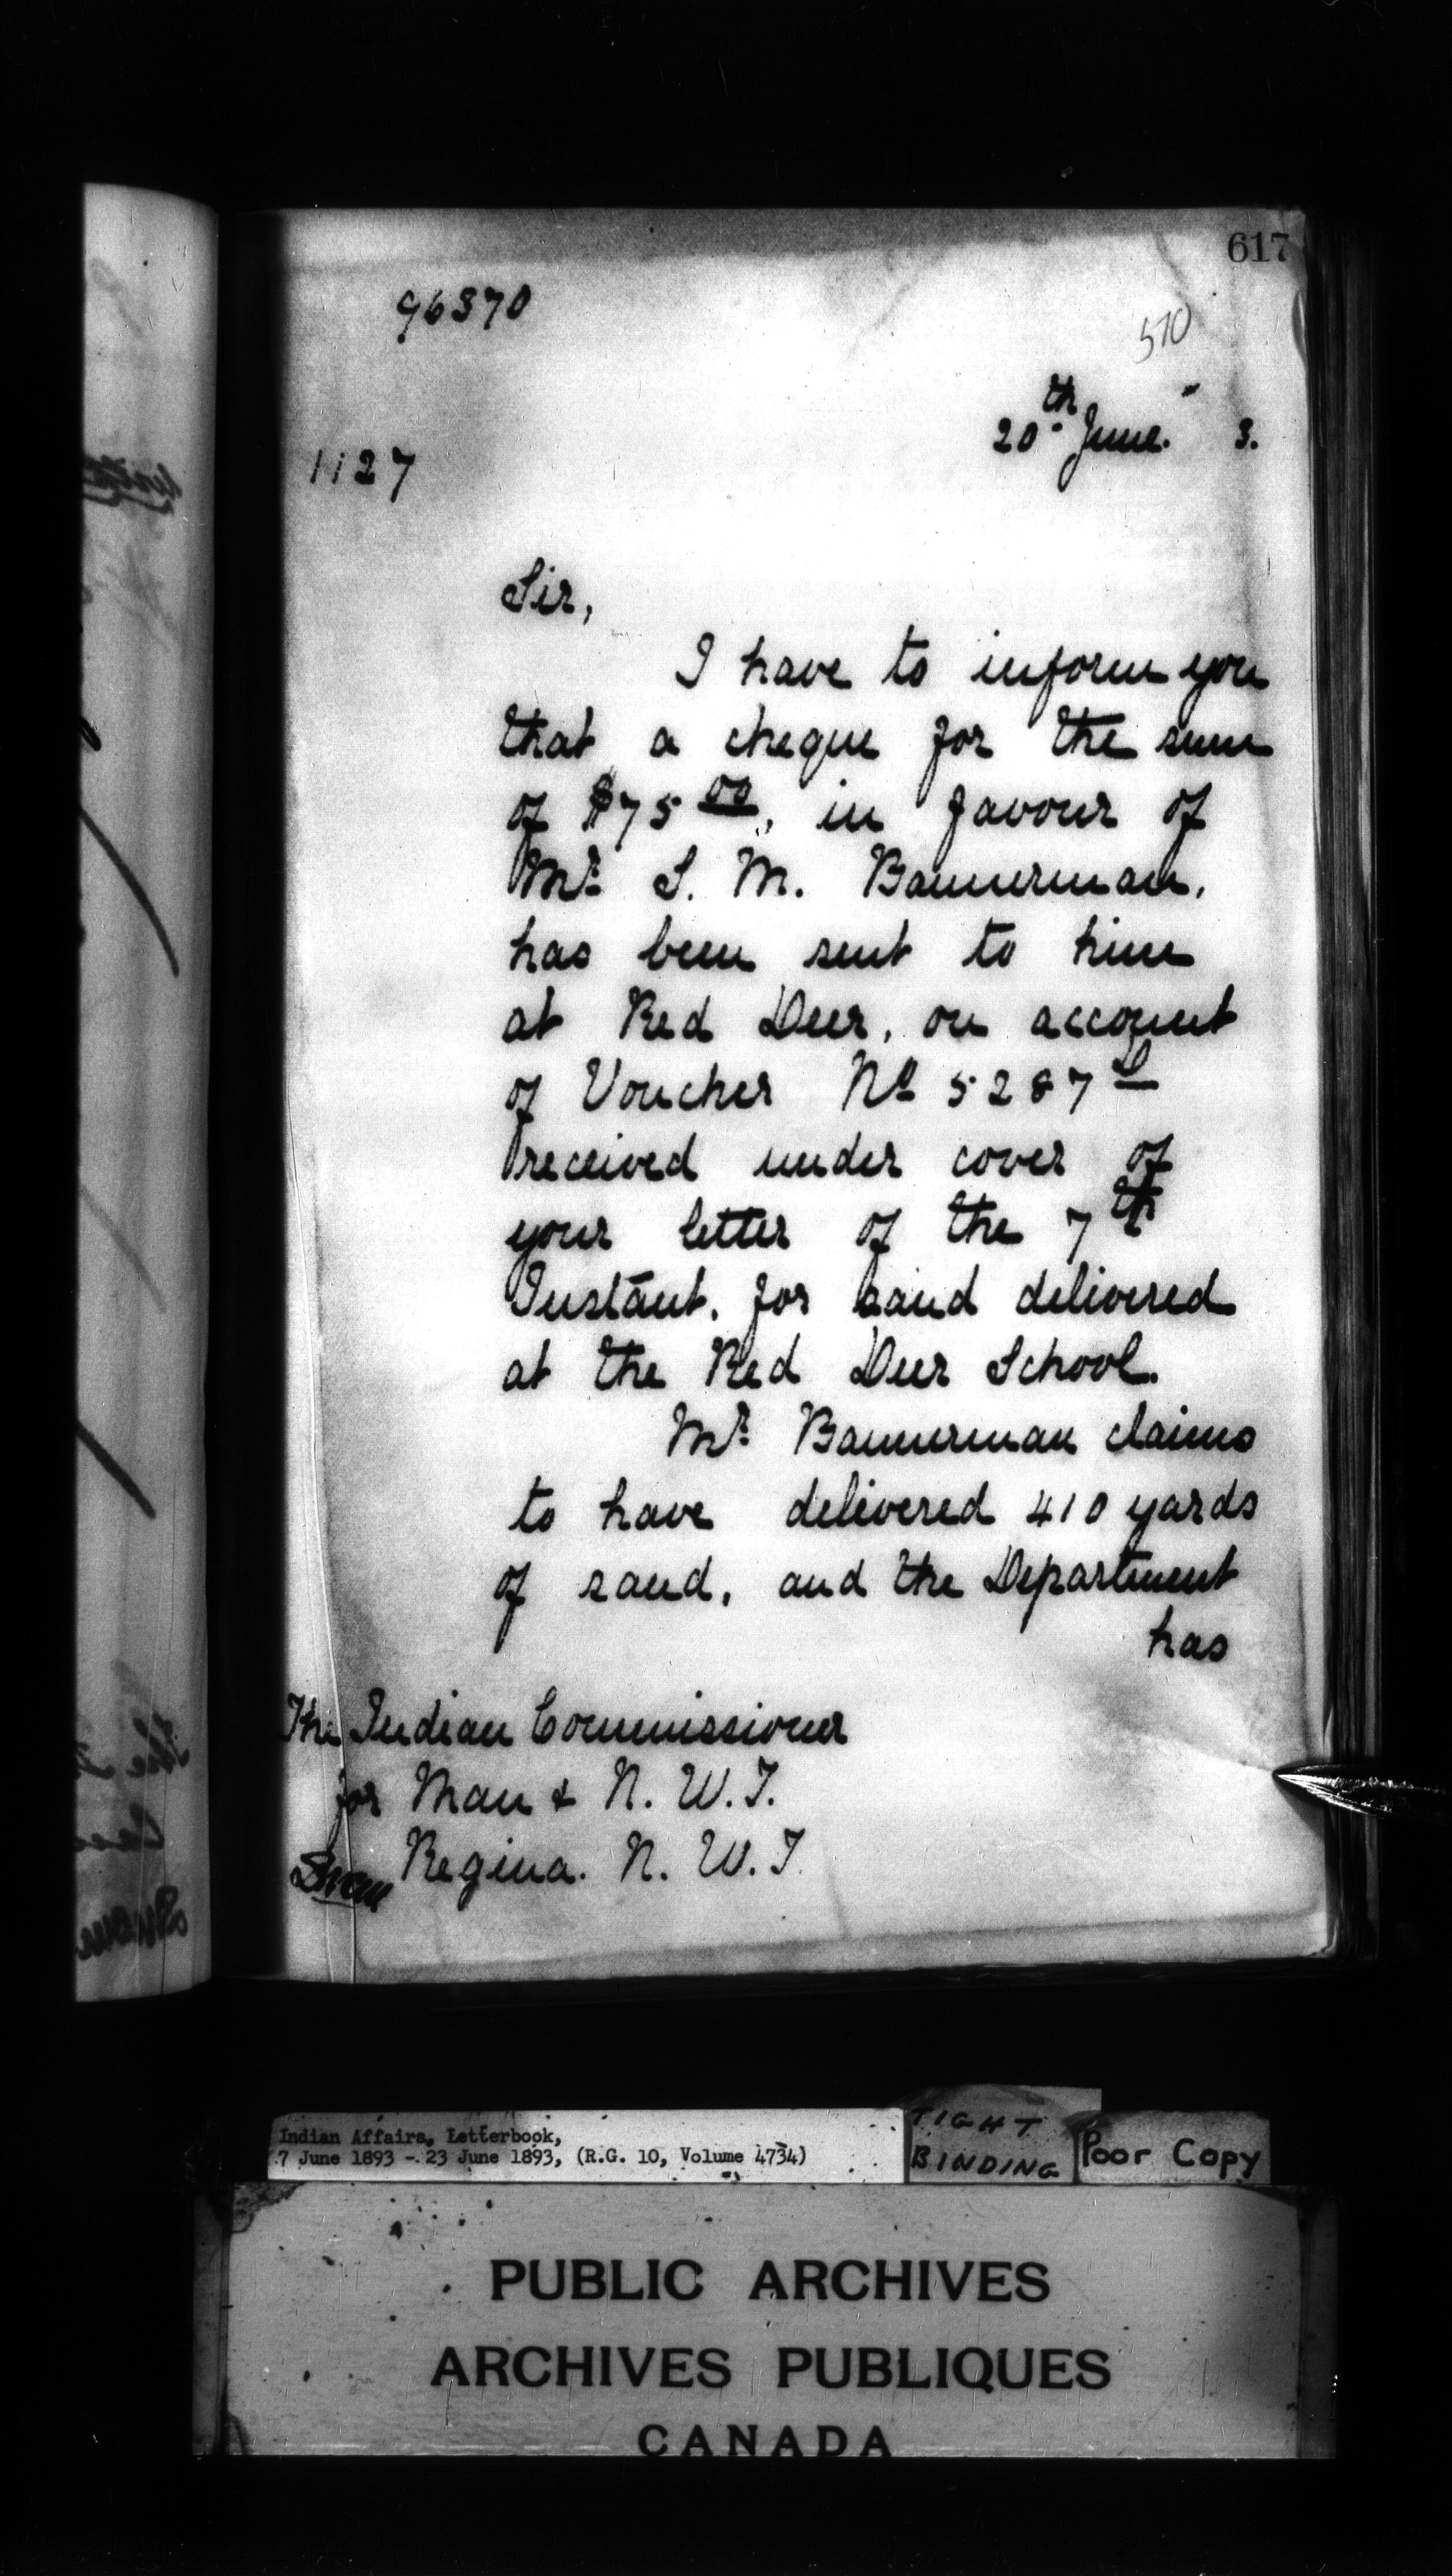 617
96370
510
20th June. 3.
1127
Sir,
I have to inform you
that a cheque for the sum
of $75 00, in favour of
Mr. S. M. Bannerman,
has been sent to him
at Red Deer, on account
of Voucher No 5287 L
received under cover of
your letter of the 7th
Instant, for sand delivered
at the Red Deer School.
Mr. Bannerman claims
to have delivered 410 yards
of sand, and the Department
has
The Indian Commissioner
for Man & N. W. T.
Regina. N. W. T.
Indian Affairs, Letterbook,
7 June 1893 - 23 June 1893, (R.G. 10, Volume 4734)
TIGHT
BINDING
Poor Copy
PUBLIC ARCHIVES
ARCHIVES PUBLIQUES
CANADA